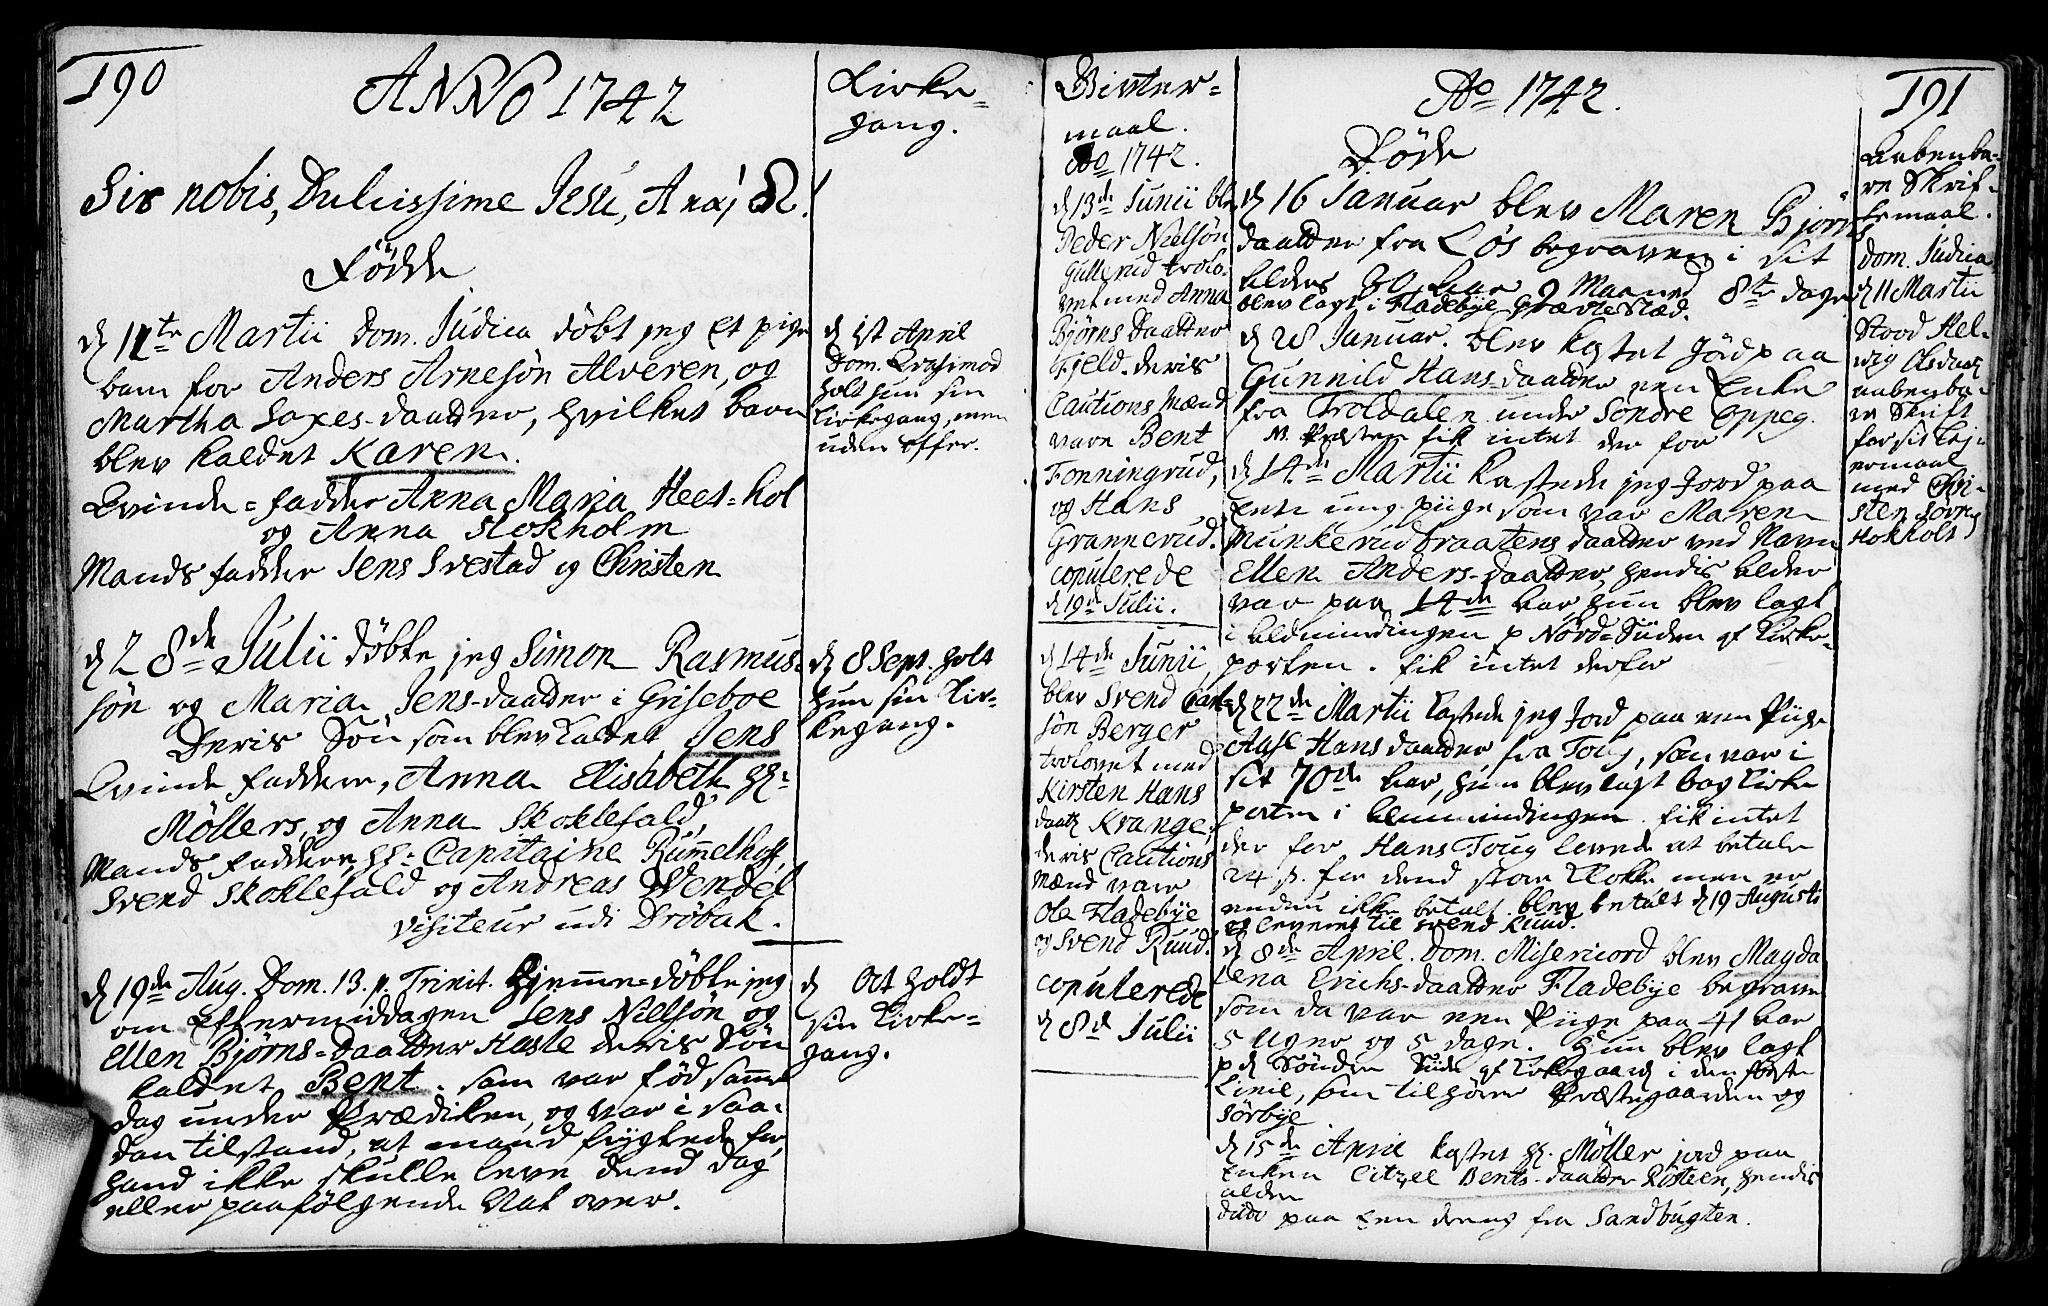 190
ANNO 1742
Sis nobis, Dulcissime Jesu, A
Födde
d 11te Martii Dom. Judica döbt jeg et pige
barn for Anders Arnesön Alveren, og
Martha Saxes-daatter, hvilket barn
blev kaldet Karen.
Qvinde-fadder Anna Maria Heet-hol
og Anna Stokholm
Mands fadder Jens Svestad og Christen
d 28de Julii döbte jeg Simon Rasmus-
sön og Maria Jens-daatter i Griseboe
Deris Sön som blev kaldet Jens
Qvinde faddere, Anna Elisabeth Hr:
Möllers, og Anna Skoklefald,
Mands faddere, Hr: Capitaine Rummelhoff,
Svend Skoklefald og Andreas Wendel
visiteur udi Dröbak.
d 19de Aug. Dom. 13. p. Trinit. hjemme-döbte jeg
om Eftermiddagen Jens Nielsön og
Ellen Björns-Daatter Hasle deris Sön
kaldet Bent. som var född samme
dag under Prædiken, og var i saa-
dan tilstand, at mand frygtede for,
hand ikke skulle leve dend dag
eller paafölgende Nat over.
Kirke-
gang.
d 1st April
Dom. Qvasimod
holt hun sin
kirkegang, men
uden offer.
d 8 Sept. holt
hun sin Kir-
kegang.
d Oct holdt
sin Kirke-
gang.
Vister-
maal.
Ao 1742.
d 13de Junii blev
Peder Nielsön
Gulterud trolo-
vet med Anna
Björns Daatter
Fjeld. deris
Cautions Mænd
vare Bent
Fonningrud,
og Hans
Grannerud.
copulerede
d 19de Julii.
d 14de Junii
blev Svend Carl-
sön Berger
trolovet med
Kirsten Hans
daatr Krange,
deris Cautions
Mænd vare
Ole Fladebye
og Svend Ruud.
copulerede
d 8de Julii
Ao 1742.
Döde
d 16 Januar blev Maren Björns
daatter fra Løs begraven i sit
alders 80 Aar 9 Maaned 8te dage
blev lagt i Fladebye Grævte Sted.
d 28 Januar. blev kastet Jord paa
Gunnild Hans-daatter een Enke
fra Troldalen under Söndre Oppeg.
N. Præsten fik intet der for
d 14de Martii kastede jeg Jord paa
een ung piige som var Maren
Munkerudbraatens daatter ved Navn
Ellen Anders-daatter, hendis alder
var paa 14de Aar, hun blev lagt
i Almindingen p Nord-Siiden af Kirke-
porten. fik intet derfor
d 22de Martii kastede jeg Jord paa een Piige
Aase Hansdaatter fra Toug, som var i
sit 70de Aar, hun blev lagt bag Kirke
porten i Almindingen. fik intet
der for Hans Toug lovede at betale
24 s. for dend store Klokke men er
endnu ikke betalt. blev betalt d 19 Augusti
og leveret til Svend Ruud.
d 8de April. Dom. Misericord blev Magda
lena Erichs-daatter Fladebye begraven
som da var een Piige paa 41 Aar
5 Uger og 5 dage. Hun blev lagt
p d Söndre Siide af Kirkegaard i den förste
Linie, som tilhörer Præstegaarden og
Sörbye
d 15de April kastet Hr. Möller jord paa
Enken Citzel Bents-daatter Rösteen, hendis
alder
döde paa een dreng fra Sandbugten.
191
Aabenba-
re Skrif-
temaal.
Dom. Judica
d 11 Martii
Stood Hel-
vig Olsdaatr
aabenba-
re Skrift
for sit Lej-
ermaal
med Chri-
sten
Hokholt